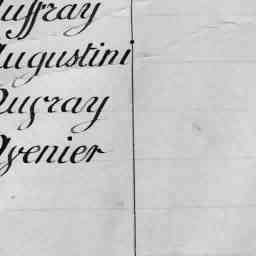 uffray
Augustini
Dufray
Avenier